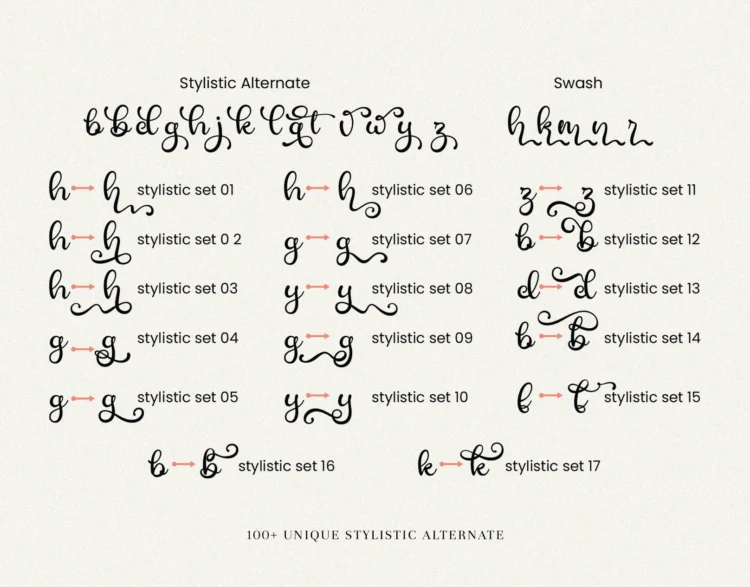 Stylistic Alternate
b b d g h j k l q t v w y z
h h stylistic set 01
h h stylistic set 0 2
h h stylistic set 03
g g stylistic set 04
g g stylistic set 05
h h stylistic set 06
g g stylistic set 07
y y stylistic set 08
g g stylistic set 09
y y stylistic set 10
Swash
h k m n z
z z stylistic set 11
b b stylistic set 12
d d stylistic set 13
b b stylistic set 14
stylistic set 15
b b stylistic set 16
k k stylistic set 17
100+ UNIQUE STYLISTIC ALTERNATE